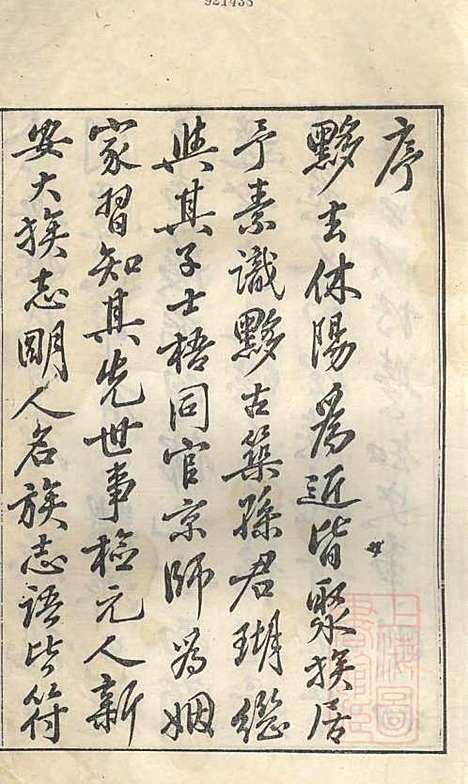 921438
序
黟去休陽爲近皆聚族居
予素識黟古築孫君瑚繼
與其子士梧同官京師爲姻
家習知其先世事檢元人新
安大族志明人名族志語皆符
上海圖書館藏